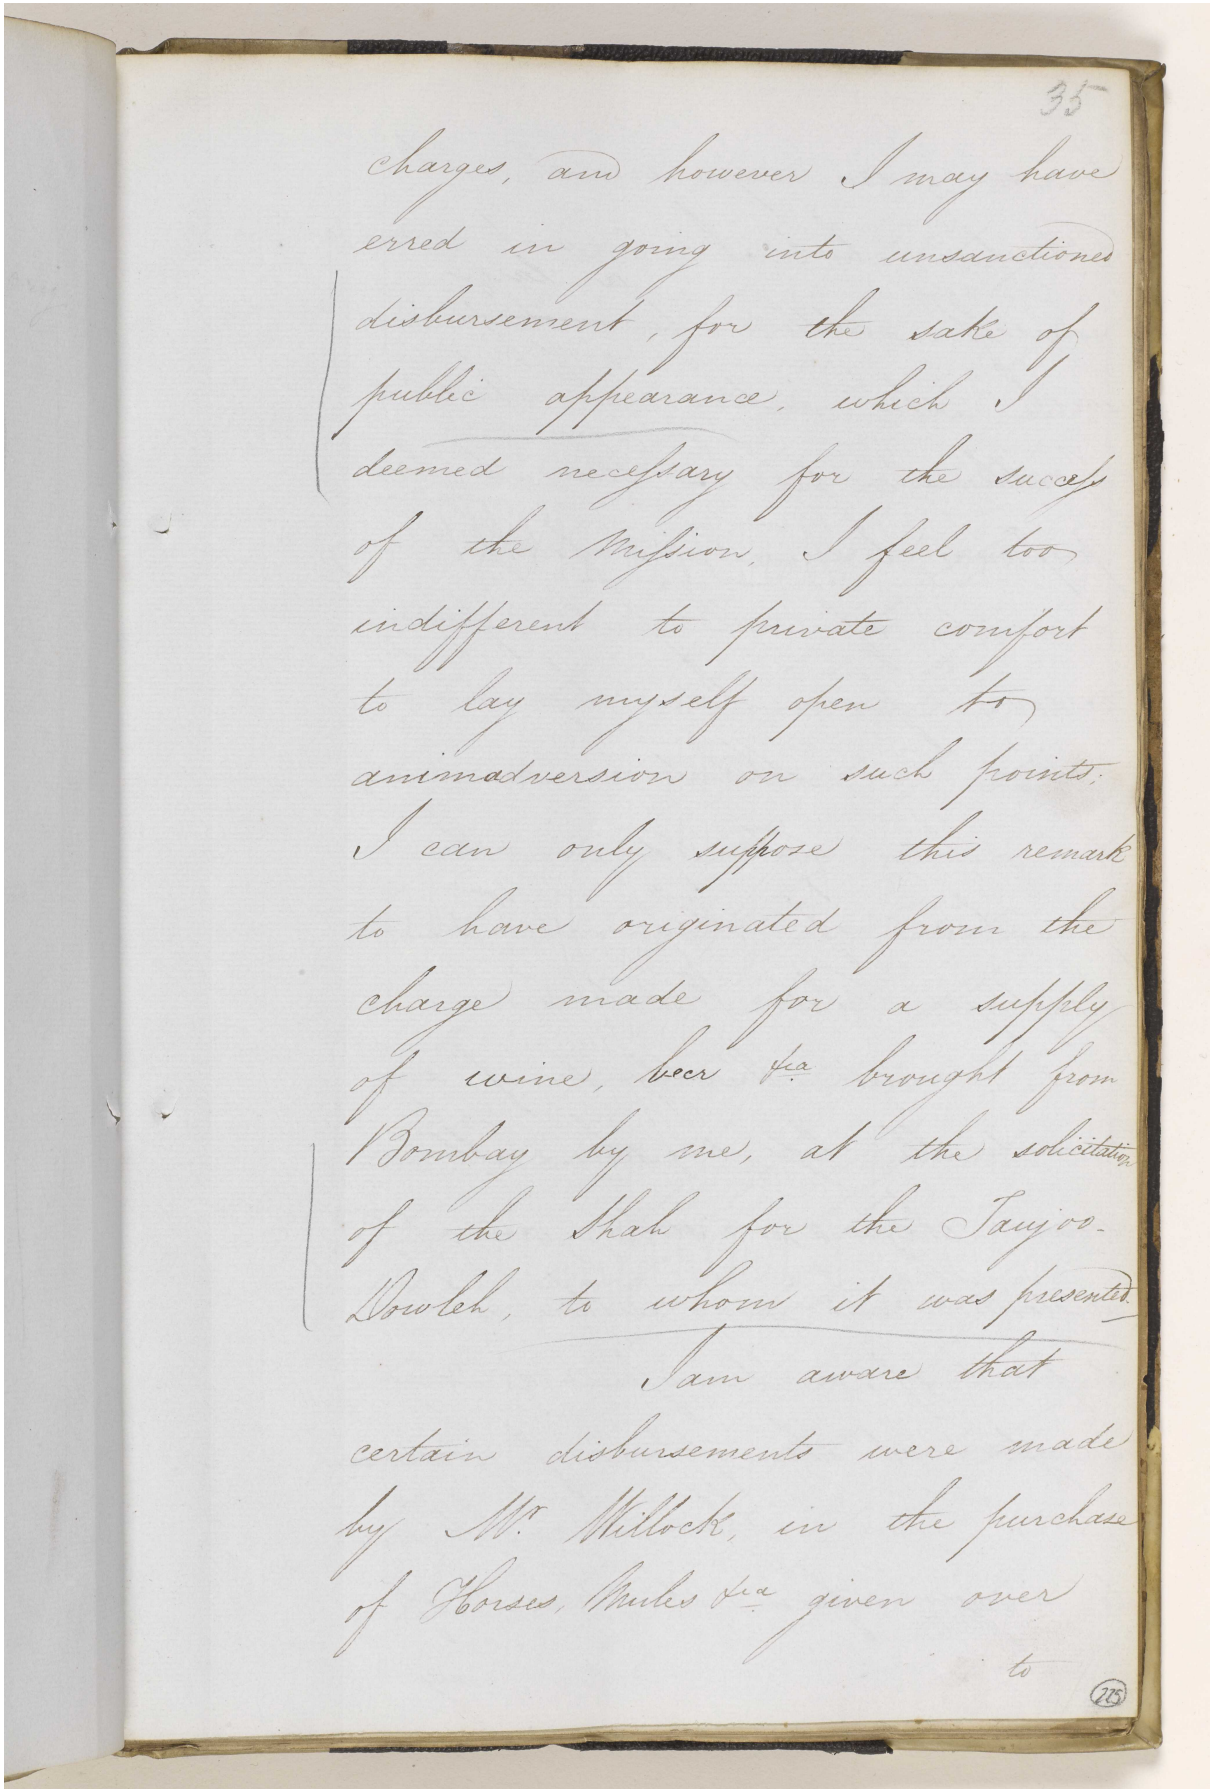 35
charges, and however I may have
erred in going into unsanctioned
disbursement, for the sake of
public appearance, which I
deemed necessary for the success
of the Mission, I feel too
indifferent to private comfort
to lay myself open to
animadversion on such points.
I can only suppose this remark
to have originated from the
charge made for a supply
of wine, beer &ca brought from
Bombay by me, at the solicitation
of the Shah for the Taujoo-
Dowleh, to whom it was presented.
I am aware that
certain disbursements were made
by Mr. Willock, in the purchase
of Horses, Mules &ca given over
to
225